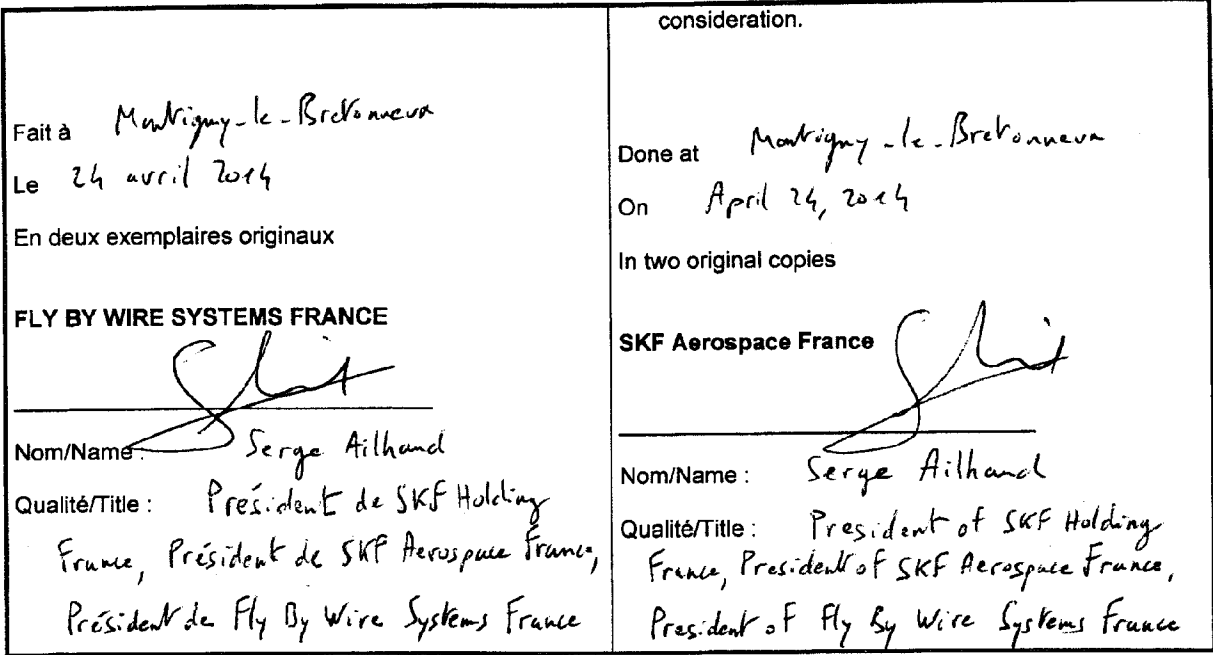 Fait à Montigny-le-Bretonneux
Le 24 avril 2014
En deux exemplaires originaux
FLY BY WIRE SYSTEMS FRANCE
Nom/Name : Serge Ailhaud
Qualité/Title : Président de SKF Holding
France, Président de SKF Aerospace France,
Président de Fly By Wire Systems France
consideration.
Done at Montigny-le-Bretonneux
On April 24, 2014
In two original copies
SKF Aerospace France
Nom/Name : Serge Ailhaud
Qualité/Title : President of SKF Holding
France, President of SKF Aerospace France,
President of Fly By Wire Systems France